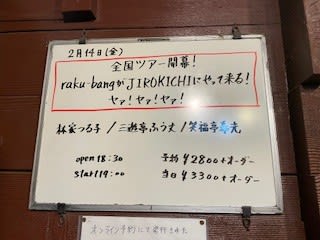 2月14日(金)
全国ツアー開幕!
raku-bangがJIROKICHIにやって来る!
ヤァ!ヤァ!ヤァ!
林家つる子/三遊亭ふう丈/笑福亭希光
open 18:30 予約 ¥2800+オーダー
start 19:00 当日 ¥3300+オーダー
オンライン予約にて